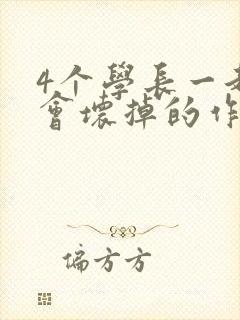 4个學長一
會壞掉的作
偏方方